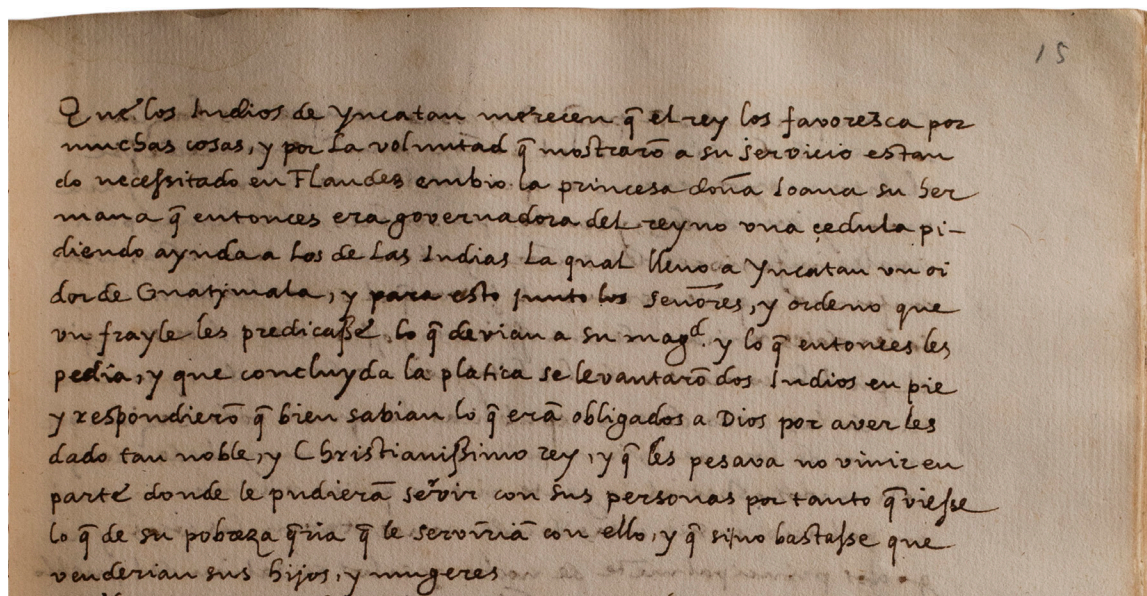 15
Que los Indios de Yucatan merecen q̃ el rey los favoresca por
muchas cosas, y por la voluntad q̃ mostrarõ a su servicio estan
do necessitado en Flandes embio la princesa doña Ioana su her
mana q̃ entonces era governadora del reyno una çedula pi-
diendo ayuda a los de las Indias la qual llevo a Yucatan un oi
dor de Guatimala, y para esto junto los señores, y ordeno que
un frayle les predicasse lo q̃ devian a su magd. y lo q̃ entonces les
pedia, y que concluyda la platica se levantarõ dos Indios en pie
y respondierõ q̃ bien sabian lo q̃ erã obligados a Dios por aver les
dado tan noble, y Christianissimo rey, y q̃ les pesava no vivir en
parte donde le pudierã servir con sus personas por tanto q̃ viesse
lo q̃ de su pobreza q̃ria q̃ le serviriã con ello, y q̃ si no bastasse que
venderian sus hijos, y mugeres